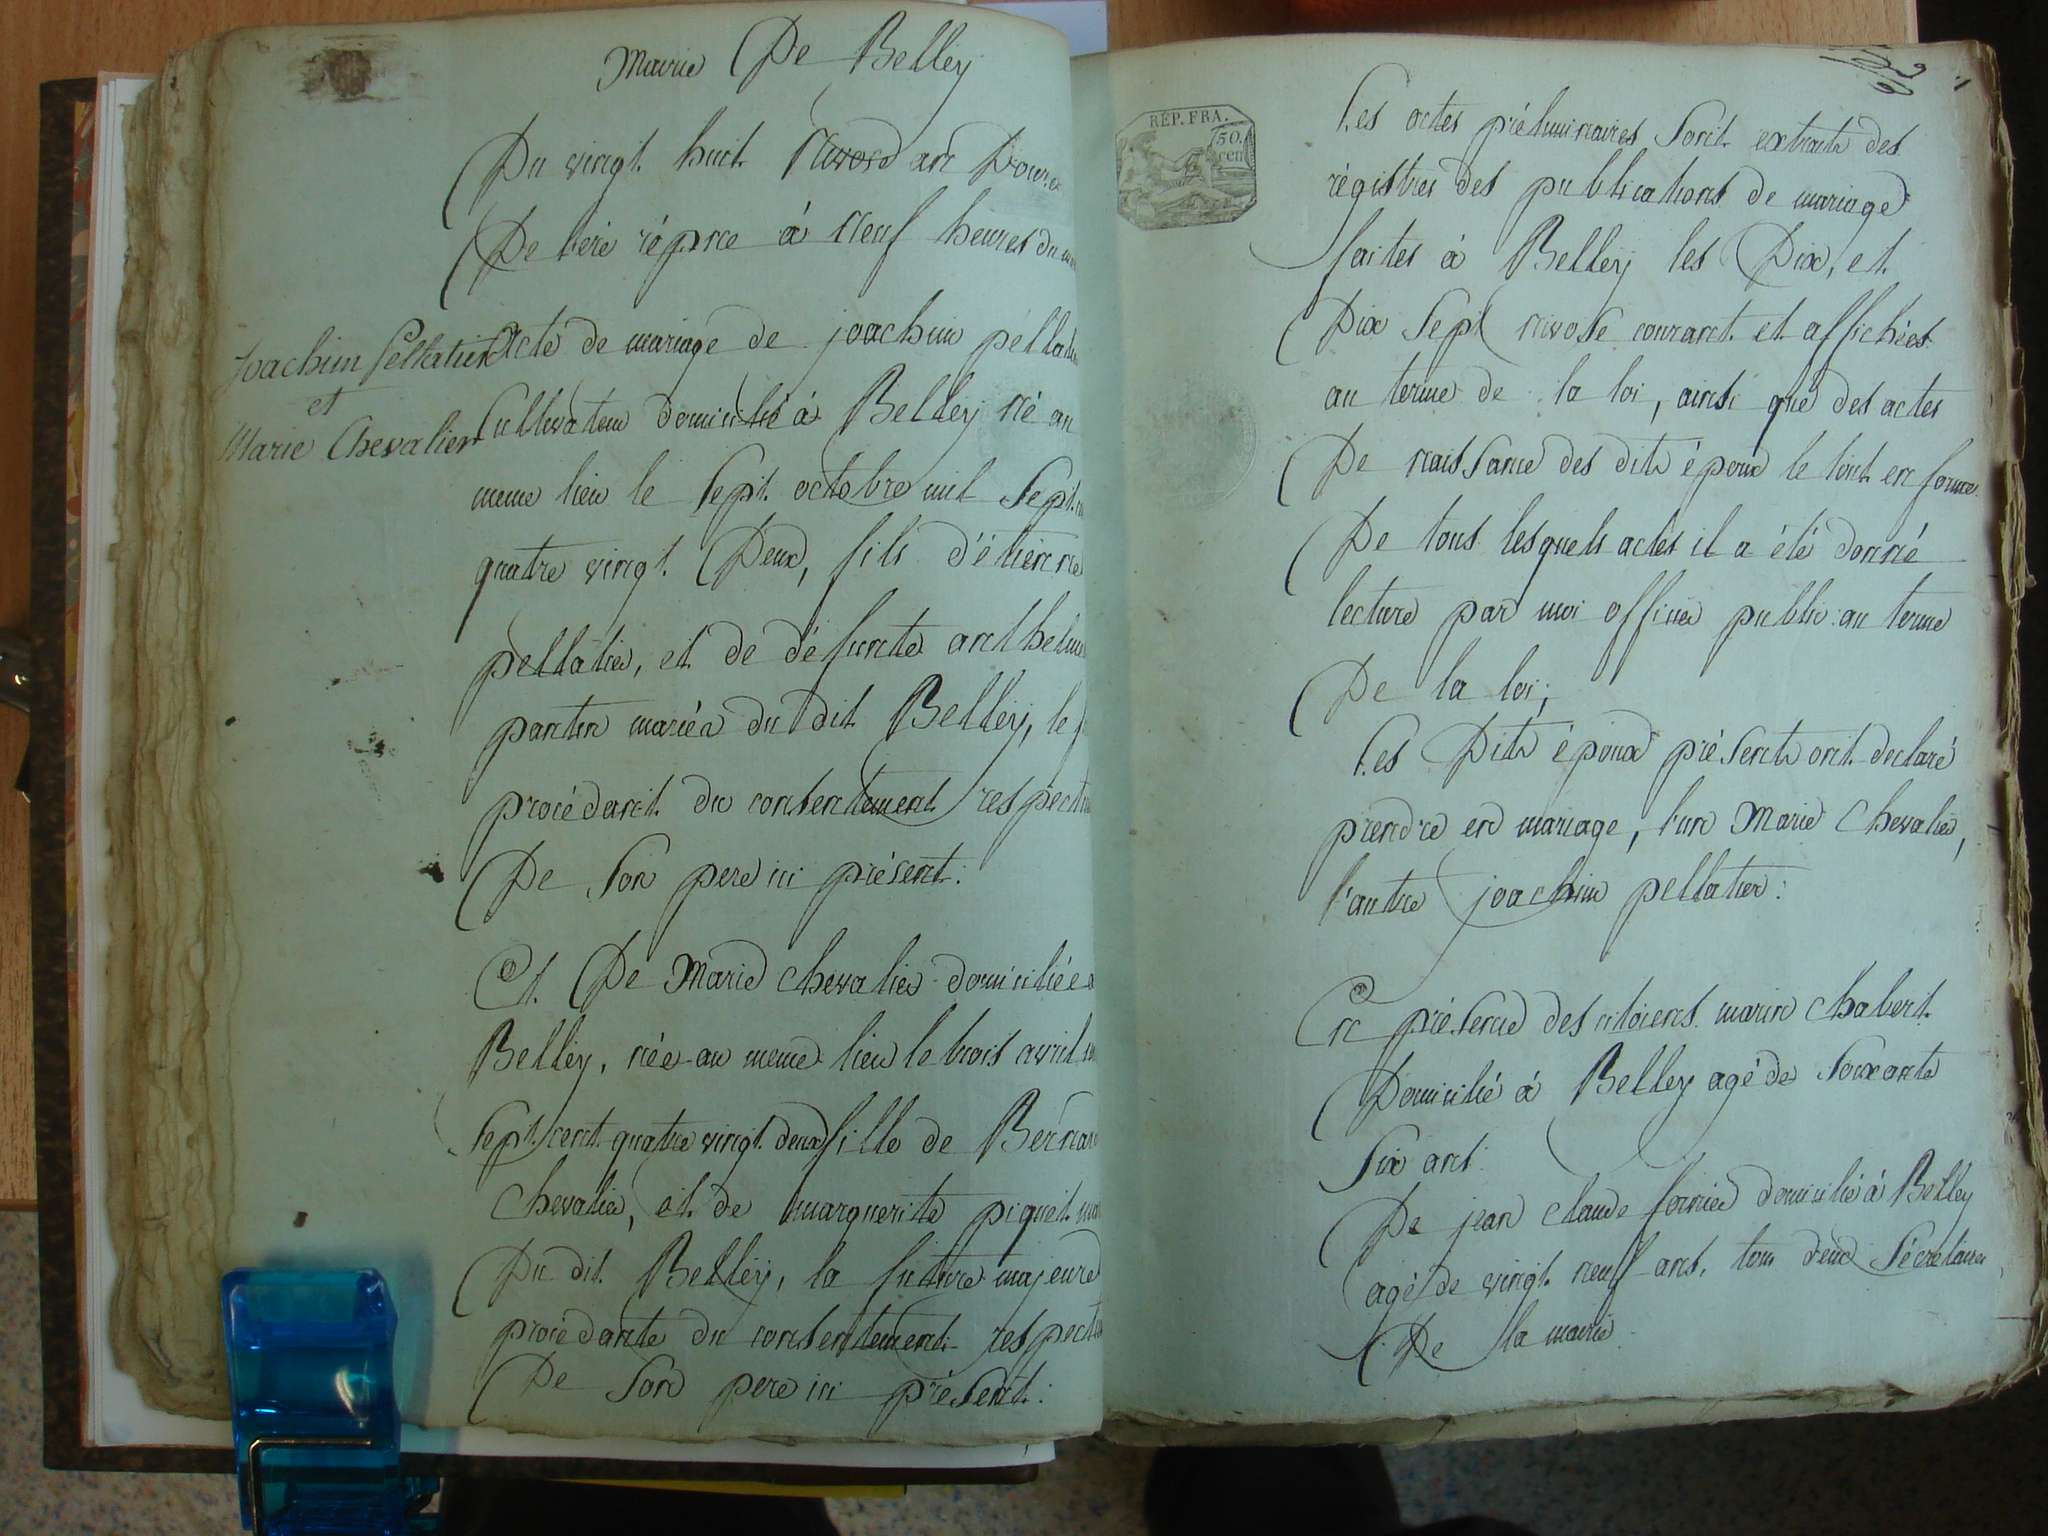 Mairie De Belley
Du vingt huit Nivose an Douze
De l'ere répque à neuf heures du
Joachim Pellatier
et
Marie Chevalier
Acte de mariage de joachim pellatier
Cultivateur domicilié à Belley né au
meme lieu le sept octobre mil sept
quatre vingt Deux, fils d'étienne
pellatier, et de défunte anthelme
pantin mariés du dit Belley, le
procédant du consentement respectu
De son pere ici présent.
Et De Marie chevalier domiciliée a
Belley, née au meme lieu le trois avril
sept cent quatre vingt deux fille de Bernar
Chevalier, et de marguerite piquet ma
Du dit Belley, la future majeure
procédante du consentement respectu
De son pere ici présent.
RÉP. FRA.
50.
cen
Les actes préliminaires sont extraits des
régistres des publications de mariage
faites à Belley les Dix, et
Dix sept nivose courant et affichées
au terme de la loi, ainsi que des actes
De naissance des dits époux le tout en forme
De tous lesquels actes il a été donné
lecture par moi officier public au terme
De la loi;
Les Dits époux présents ont declaré
prendre en mariage, l'un Marie Chevalier,
l'autre joachim pellatier:
En présence des citoiens marin chabert
Domicilié à Belley agé de soixante
six ans
De jean claude fornier domicilié à Belley
agé de vingt neuf ans, tous deux sécretaires
De la mairie